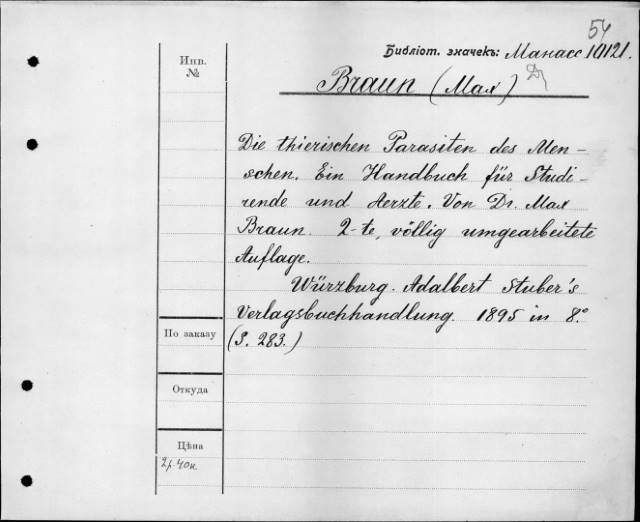 54
Библіот. значекъ: Манасс 10121.
Инв.
№
Braun (Max)
Die thierischen Parasiten des Men-
schen. Ein Handbuch für Studi-
rende und Aerzte. Von Dr. Max
Braun. 2-te, völlig umgearbeitete
Auflage.
Würzburg. Adalbert Stuber's
Verlagsbuchhandlung. 1895 in 8.°
(S. 283.)
По заказу
Откуда
Цѣна
2р. 40к.